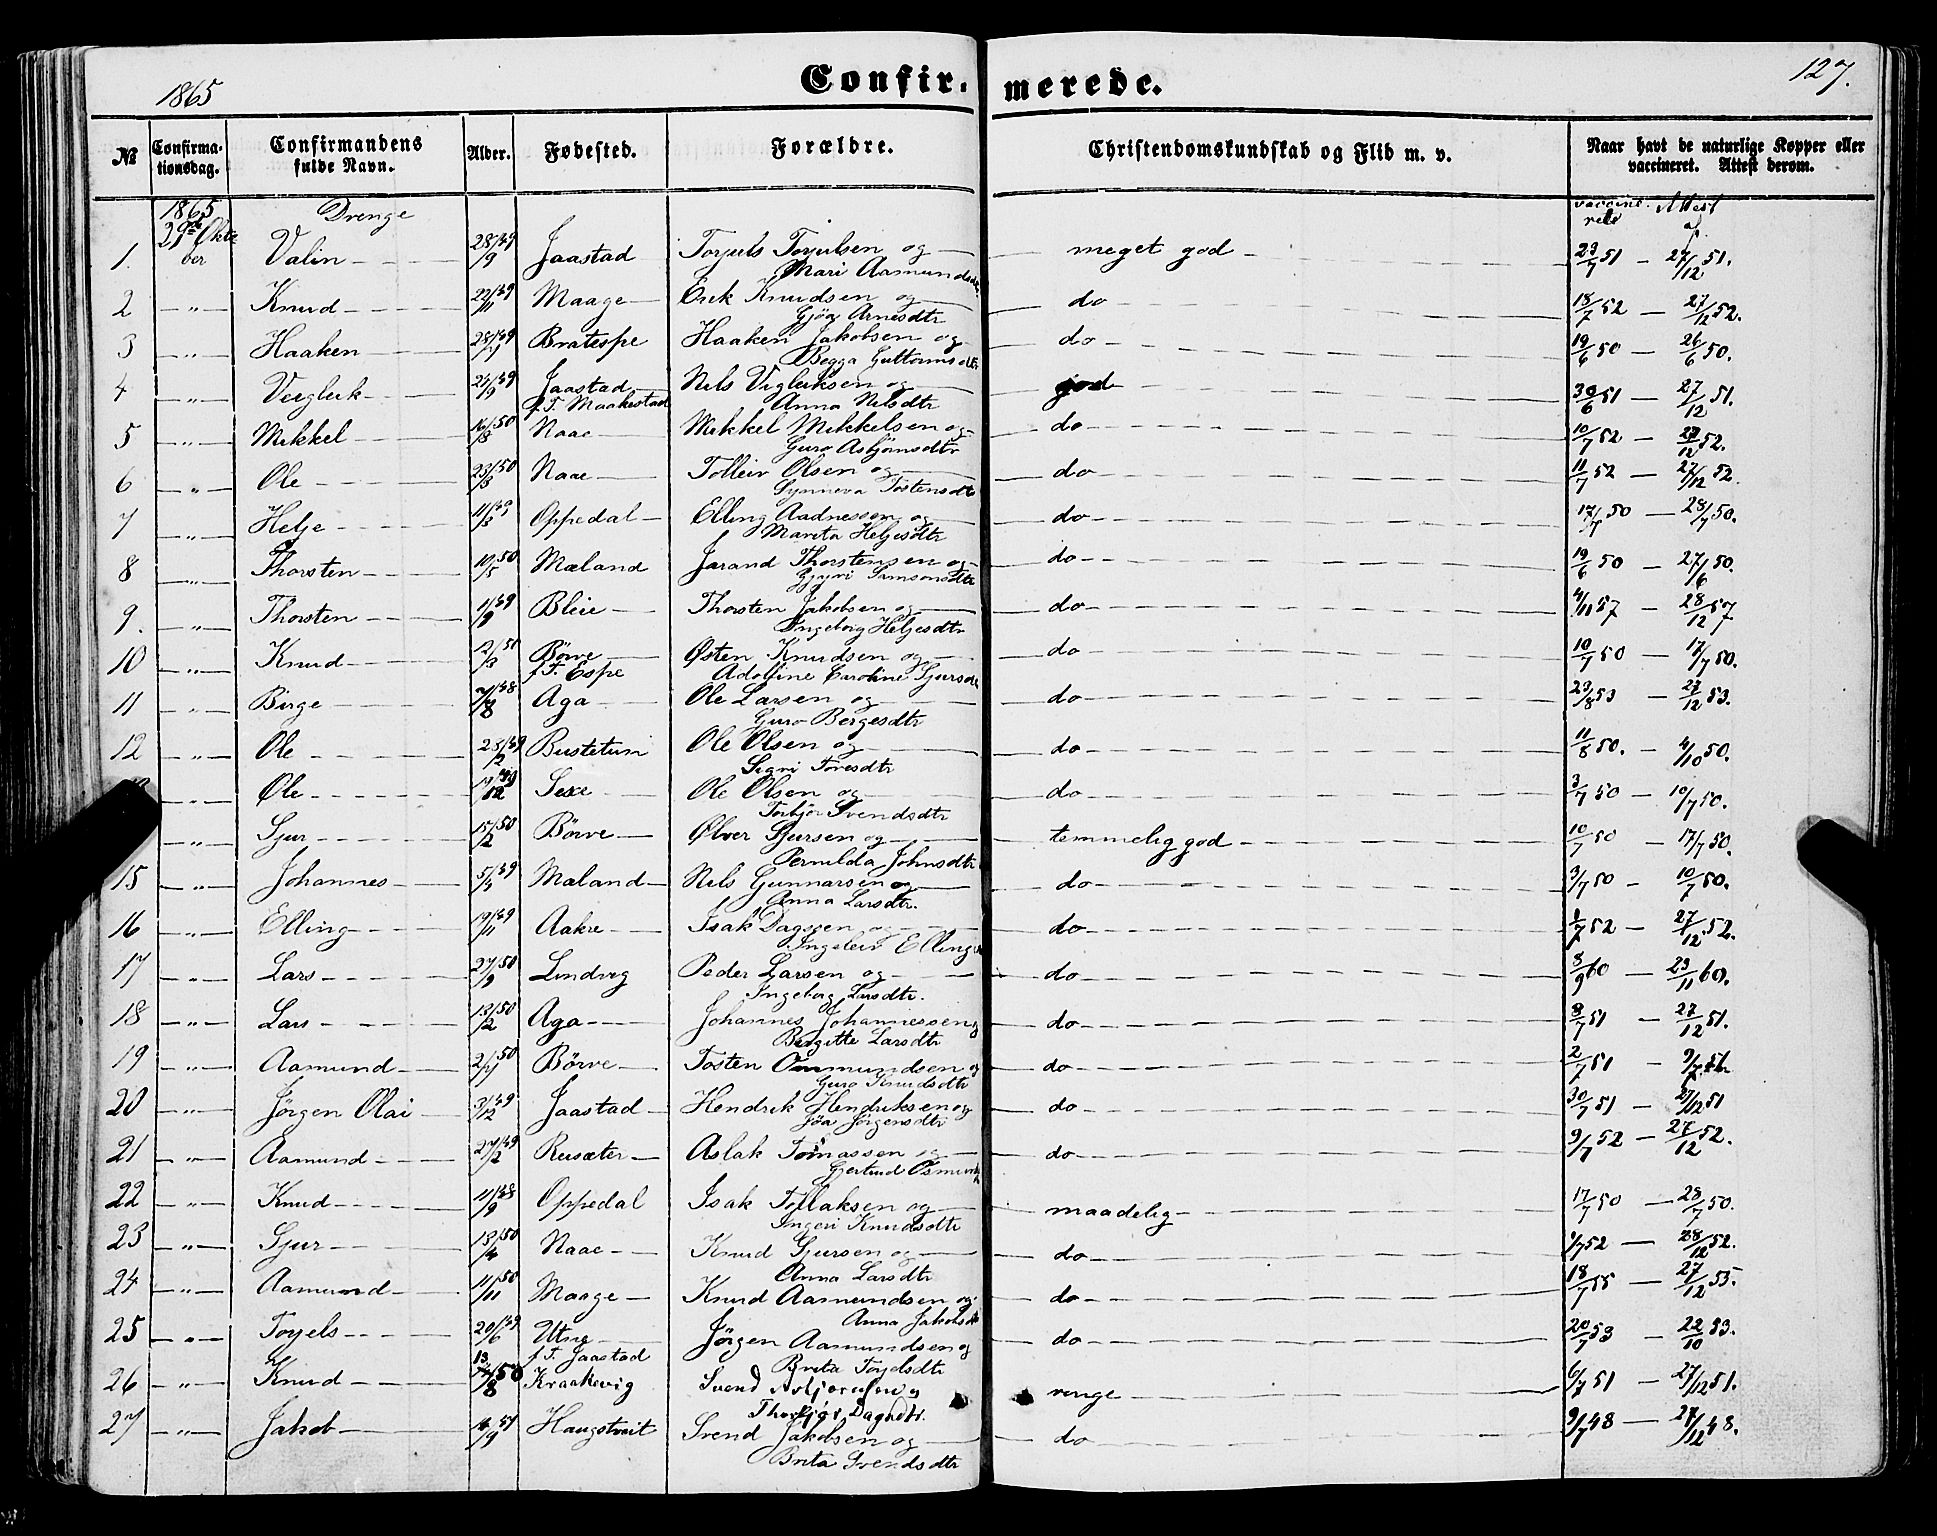 1865 Confir- merede. 127.
№ Confirma-tionsdag. Confirmandens fulde Navn. Alder. Fødested. Forældre. Christendomskundskab og Flid m. v. Naar havt de naturlige Kopper eller vaccineret. Attest derom.
1865 Drenge Attest
1. Valin 28/9 49 Jaastad Torjuls Torjulsen og meget god 23/7 51 – 27/12 51.
Mari Aamundsdtr
2 " Knud 22/11 49 Maage Erik Knudsen og do 18/7 52 – 27/12 52.
Gjøa Arnesdtr
3 " Haaken Bratespe Haaken Jakobsen og do 19/6 50 – 26/6 50.
Begga Guttormsdtr
4 " Veiglerk Jaastad Nils Vigleiksen og god 30/6 51 – 27/12 51.
f. T. Maakestad Anna Nilsdtr
5 " Mikkel Naae Mikkel Mikkelsen og do 10/7 52 – 27/12 52.
Guro Asbjørnsdtr
6 " Ole 23/3 50 Naae Tolleiv Olsen og do 11/7 52 – 27/12 52.
Synneva Tostensdtr
7 " Helje Oppedal Elling Aadnessen og do 17/7 50 – 28/7 50.
Marita Heljesdtr
8 " Thorsten 10/5 50 Mæland Jarand Thorstensen og do 19/6 50 – 27/6 50.
Gjyri Samsonsdtr
9. " Thorsten 11/9 49 Bleie Thorsten Jakobsen og do 4/11 57 – 28/12 57
Ingeborg Heljesdtr
10 " Knud 12/3 50 Børve Østen Knudsen og do 10/7 50 – 17/7 50.
f. T. Espe Adolfine Caroline Sjursdtr
11 " Birge Aga Ole Larsen og do 23/8 53 – 27/12 53.
Guro Bergesdtr
12 " Ole 28/2 49 Bustetun Ole Olsen og do 11/8 50. – 4/10 50.
Sigri Toresdtr
" Ole 19/12 49 Sexe Ole Olsen og do 3/7 50 – 10/7 50.
Torbjør Svendsdtr
" Sjur 15/2 50 Børve Ølver Sjursen og temmelig god 10/7 50 – 17/7 50.
Pernilda Johnsdtr
15 " Johannes Mæland Nils Gunnarsen og do 3/7 50 – 10/7 50.
Anna Larsdtr.
16 " Elling 19/11 49 Aakre Isak Dagssen og do 1/7 52 – 27/12 52.
Ingeleiv Ellings
17 " Lars 27/9 50 Lindvig Peder Larsen og do 8/9 60 – 23/11 60.
Ingeborg Larsdtr.
18 " Lars 13/2 50 Aga Johannes Johannessen og do 8/7 51 – 27/12 51.
Birgitte Larsdtr
19 " Aamund Børve Tosten Ommundsen og do 2/7 51 –
Guro Knudsdtr
20 " Jørgen Olai 31/12 49 Jaastad Hendrik Hendriksen og do 30/7 51 – 27/12 51
Jøa Jørgensdtr
21 " Aamund 27/2 49 Reisæter Aslak Tomassen og do 9/7 52 – 27/12 52.
Gjertrud Osmunds
22 " Knud 11/9 48 Oppedal Isak Tollaksen og maadelig 17/7 50 – 28/7 50.
Ingeri Knudsdtr
23 " Sjur 18/4 50 Naae Knud Sjursen og do 1/7 52 – 28/12 52.
Anna Larsdtr
24 " Aamund 11/11 50 Maage Knud Aamundsen og do 18/7 55 – 27/12 55.
Anna Jakobsdtr
25 " Toyels 20/6 49 Utne Jørgen Aamundsen og do 20/7 53 – 22/10 53.
f. T. Jaastad Brita Toyelsdtr
26 " Knud Kraakevig Svend Asbjørnsen og ringe 6/7 51 – 27/12 51.
Thorbjør Dagsdtr.
27 " Jakob Haugstveit Svend Jakobsen og do 9/7 48 – 27/12 48.
Brita Svendsdtr